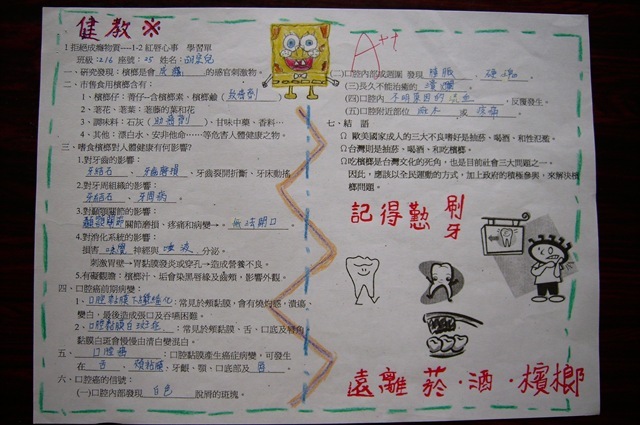 健教※
1拒絕成癮物質---1-2紅唇心事 學習單
班級:216 座號:25 姓名:
一、研究發現:檳榔是會成癮的感官刺激物。
二、市售食用檳榔含有:
1、檳榔仔:菁仔--含檳榔素,檳榔鹼(致癌劑)
2、荖花、荖葉:荖藤的葉和花
3、調味料:石灰(助癌劑)、甘味中藥、香料…
4、其他:漂白水、安非他命……等危害人體健康之物。
三、嗜食檳榔對人體健康有何影響?
1.對牙齒的影響:
牙結石、牙齒磨損、牙齒裂開折斷、牙床動搖
2.對牙周組織的影響:
牙結石、牙周病。
3.對顳顎關節的影響:
顳顎關節關節磨損、疼痛和病變→。無法開口
4.對消化系統的影響:
損害味覺神經與唾液分泌。
刺激胃壁→胃黏膜發炎或穿孔→造成營養不良。
5.有礙觀瞻:檳榔汁、垢會染黑唇緣及齒頰,影響外觀。
四、口腔癌前期病變:
1、口腔黏膜下纖維化:常見於頰黏膜,會有燒灼感,潰瘍
變白,最後造成張口及吞嚥困難。
2、口腔黏膜白斑症:常見於頰黏膜、舌、口底及特角
黏膜白斑會慢慢由清白變混白。
五、口腔癌:口腔黏膜產生癌症病變,可發生
在舌、頰黏膜、牙齦、顎、口底部及唇。
六、口腔癌的信號:
(一)口腔內部發現白色脫屑的斑塊。
A++
(二)口腔內部或頸圍 發現腫脹、硬塊
(三)長久不能治癒的潰瘍。
(四)口腔內不明原因的流血,反覆發生。
(五)口腔附近部位麻木或疼痛
七、結 語
Ω 歐美國家成人的三大不良嗜好是抽菸、喝酒、和性氾濫。
Ω台灣則是抽菸、喝酒、和吃檳榔。
Ω吃檳榔是台灣文化的死角,也是目前社會三大問題之一。
因此,應該以全民運動的方式,加上政府的積極參與,來解決檳
榔問題。
記得勤刷牙
遠離菸、酒、檳榔